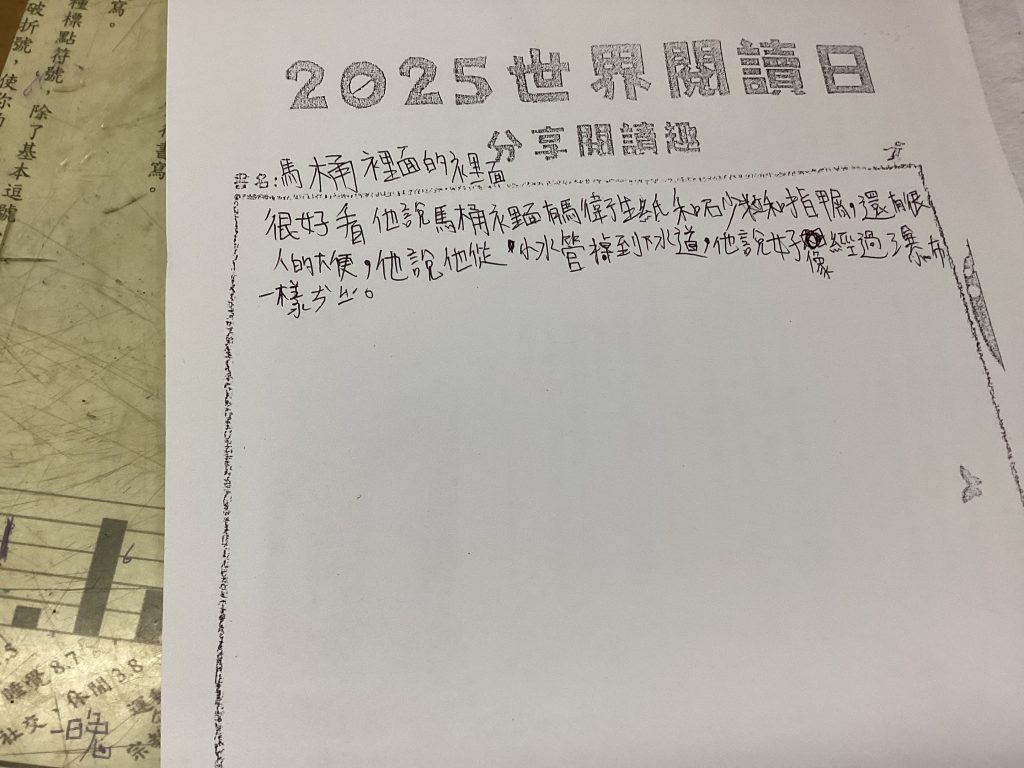 2025世界閱讀日
分享閱讀趣
書名:馬桶裡面的裡面
很好看他說馬桶裡面有衛生紙和砂粒和指甲屑,還有很
人的大便,他說他從水管掉到下水道,他說好像經過了瀑布
一樣ㄎㄨ。
寫。
種標點符號,除了基本逗號
破折號,使你的
書寫。
6
睡覺8.7
社交、休閒3.8
晚